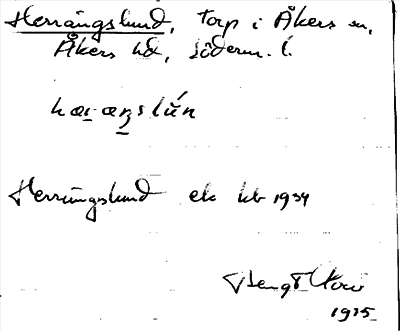 Herrängslund, torp i Åkers sn,
Åkers hd, Söderm. l.
Herrängslund ek kb 1934
Bengt
1935